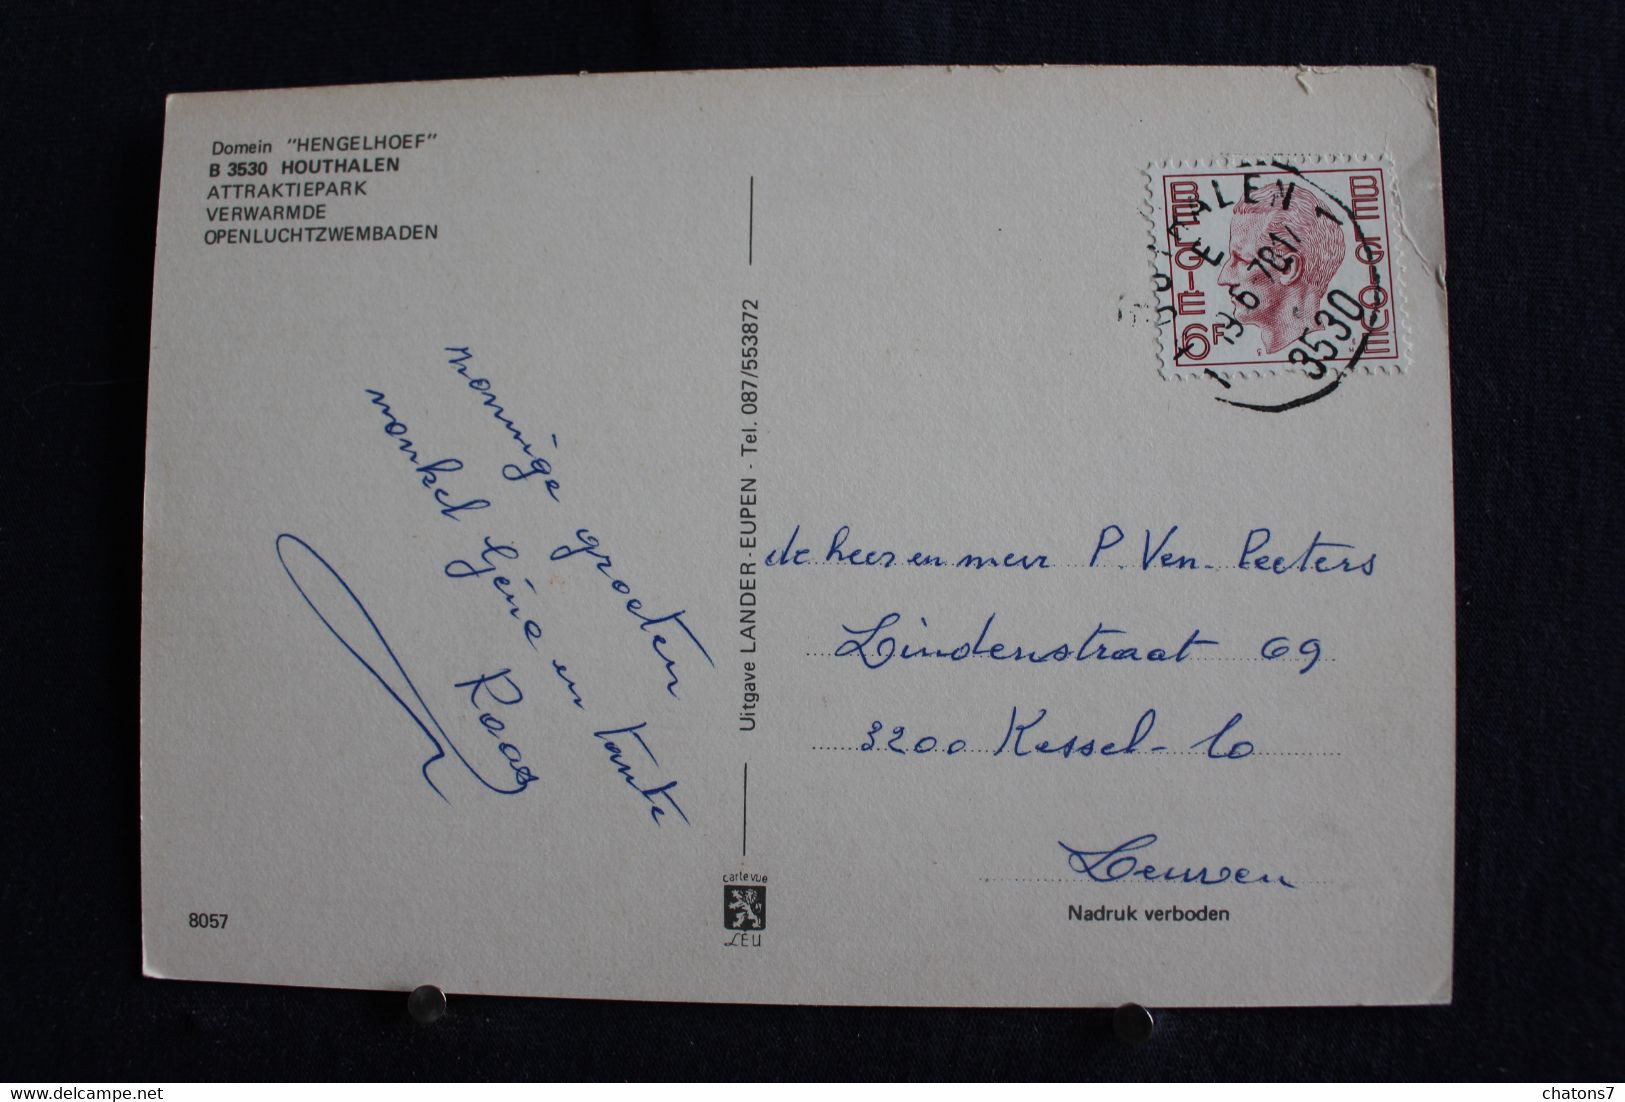 Domein "HENGELHOEF"
B 3530 HOUTHALEN
ATTRAKTIEPARK
VERWARMDE
OPENLUCHTZWEMBADEN
zonnige groeten
nonkel Gène en tante
Roos
8057
Uitgave LANDER - EUPEN - Tel. 087/553872
carte vue
LEU
BELGIE
BELGIQUE
6F
19-6
3530
de heer en mevr P. Ven. Peeters
Lindenstraat 69
3200 Kessel-lo
Leuven
Nadruk verboden
chatons7